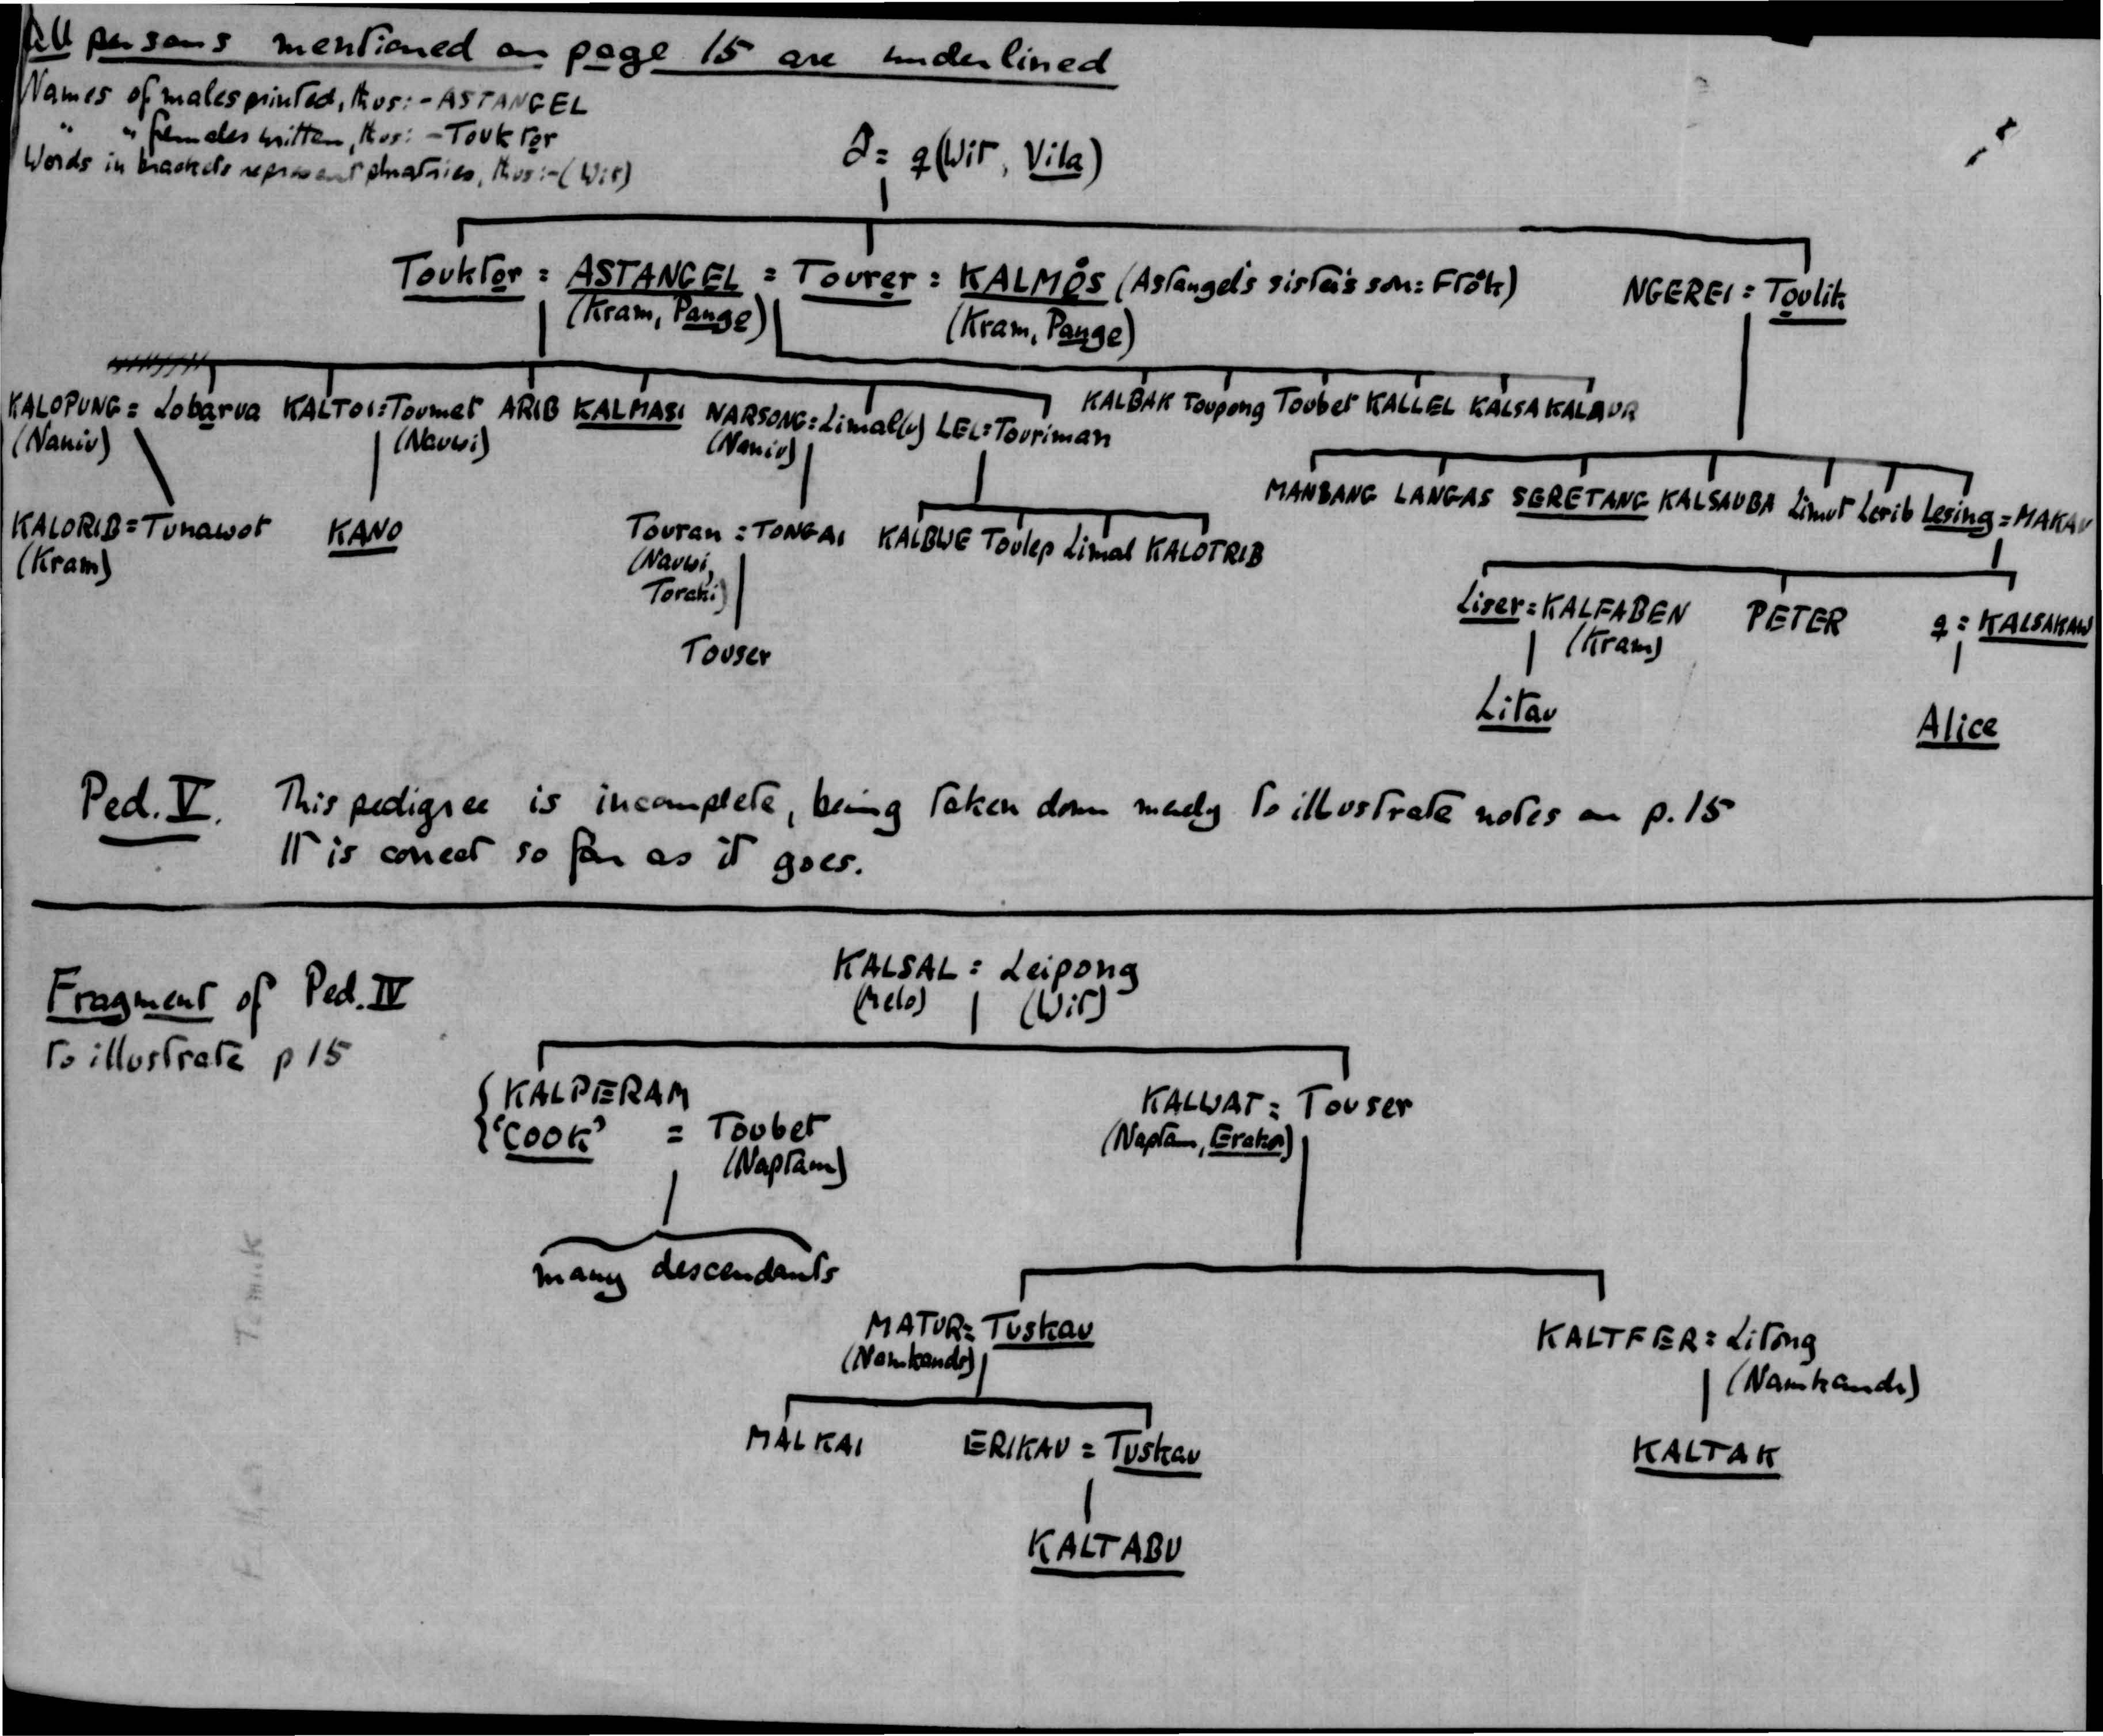 All persons mentioned on page 15 are underlined
Names of males printed, thus:- ASTANGEL
" " females written, thus:- Touktor
Words in brackets represent phratries, thus:- (Wit)
♂ = ♀ (Wit, Vila)
Touktor = ASTANGEL = Tourer = KALMOS (Astangel's sister's son: Flok)
NGEREI = Toulik
(Kram, Pange)
(Kram, Pange)
KALOPUNG = Lobarua KALTOI = Toumet ARIB KALMASI NARSONG = Limal(u) LEL = Touriman
KALBAK Toupong Toubet KALLEL KALSA KALAUR
(Naniu)
(Nauwi)
(Naniu)
MANBANG LANGAS SERETANG KALSAUBA Limut Lerib Lesing = MAKAU
KALORIB = Tunawot
KANO
Touran = TONGAI
KALBWE Toulep Limal KALOTRIB
(Kram)
(Nauwi,
Toraki)
Touser
Liser = KALFABEN
PETER
♀ = KALSAKAW
(Kram)
Litau
Alice
Ped. V. This pedigree is incomplete, being taken down merely to illustrate notes on p. 15
It is correct so far as it goes.
Fragment of Ped. IV
to illustrate p 15
KALSAL = Leipong
(Melo) (Wit)
KALPERAM
'COOK' = Toubet
(Naptam)
KALWAT = Touser
(Naptam, Erakor)
many descendants
MATUR = Tuskau
(Namkande)
KALTFER = Litong
(Namkande)
MALKAI
ERIKAU = Tuskau
KALTAK
KALTABU